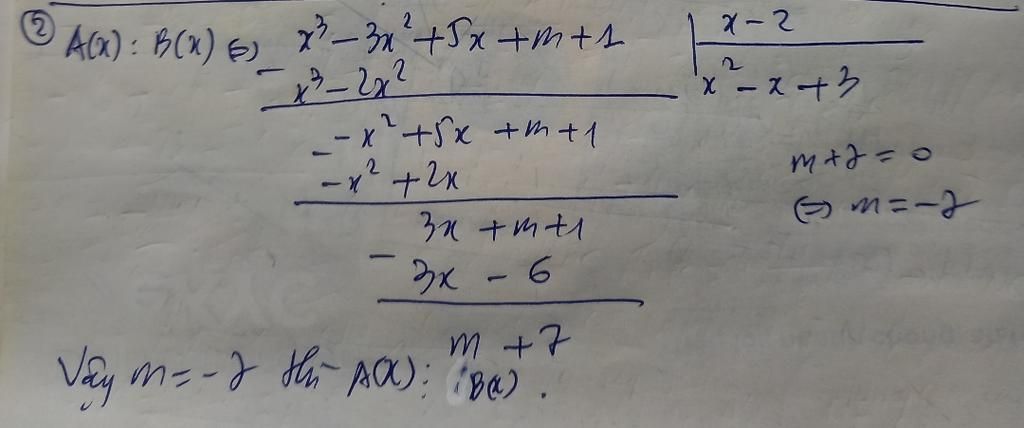 ② A(x) : B(x) ⇔ x³ - 3x² + 5x + m + 1 | x - 2
- x³ - 2x² x² - x + 3
- x² + 5x + m + 1
- - x² + 2x m + 7 = 0
3x + m + 1 ⇔ m = - 7
- 3x - 6
m + 7
Vậy m = - 7 thì A(x) ⋮ B(x) .